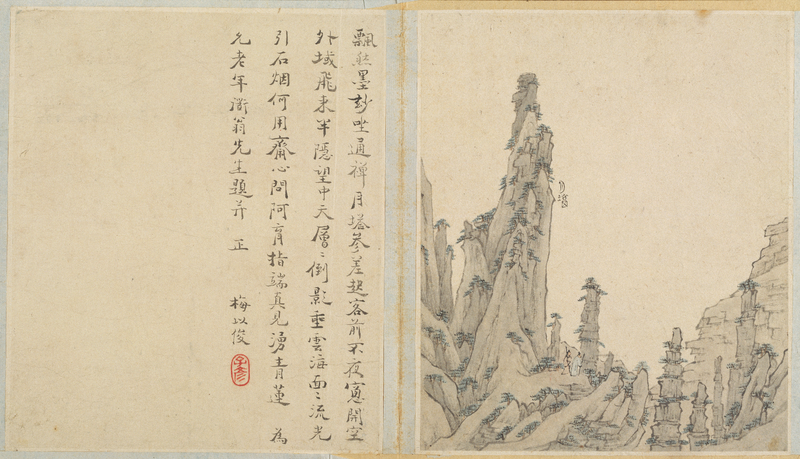 飄然墨妙坐通禪月塔參差起客前不夜窻開空
外域飛來半隱望中天層〻倒影垂雲海面〻流光
引石烟何用齋心問阿育指端真見湧青蓮 為
允老年衛翁先生題并 正
梅以俊
月塔